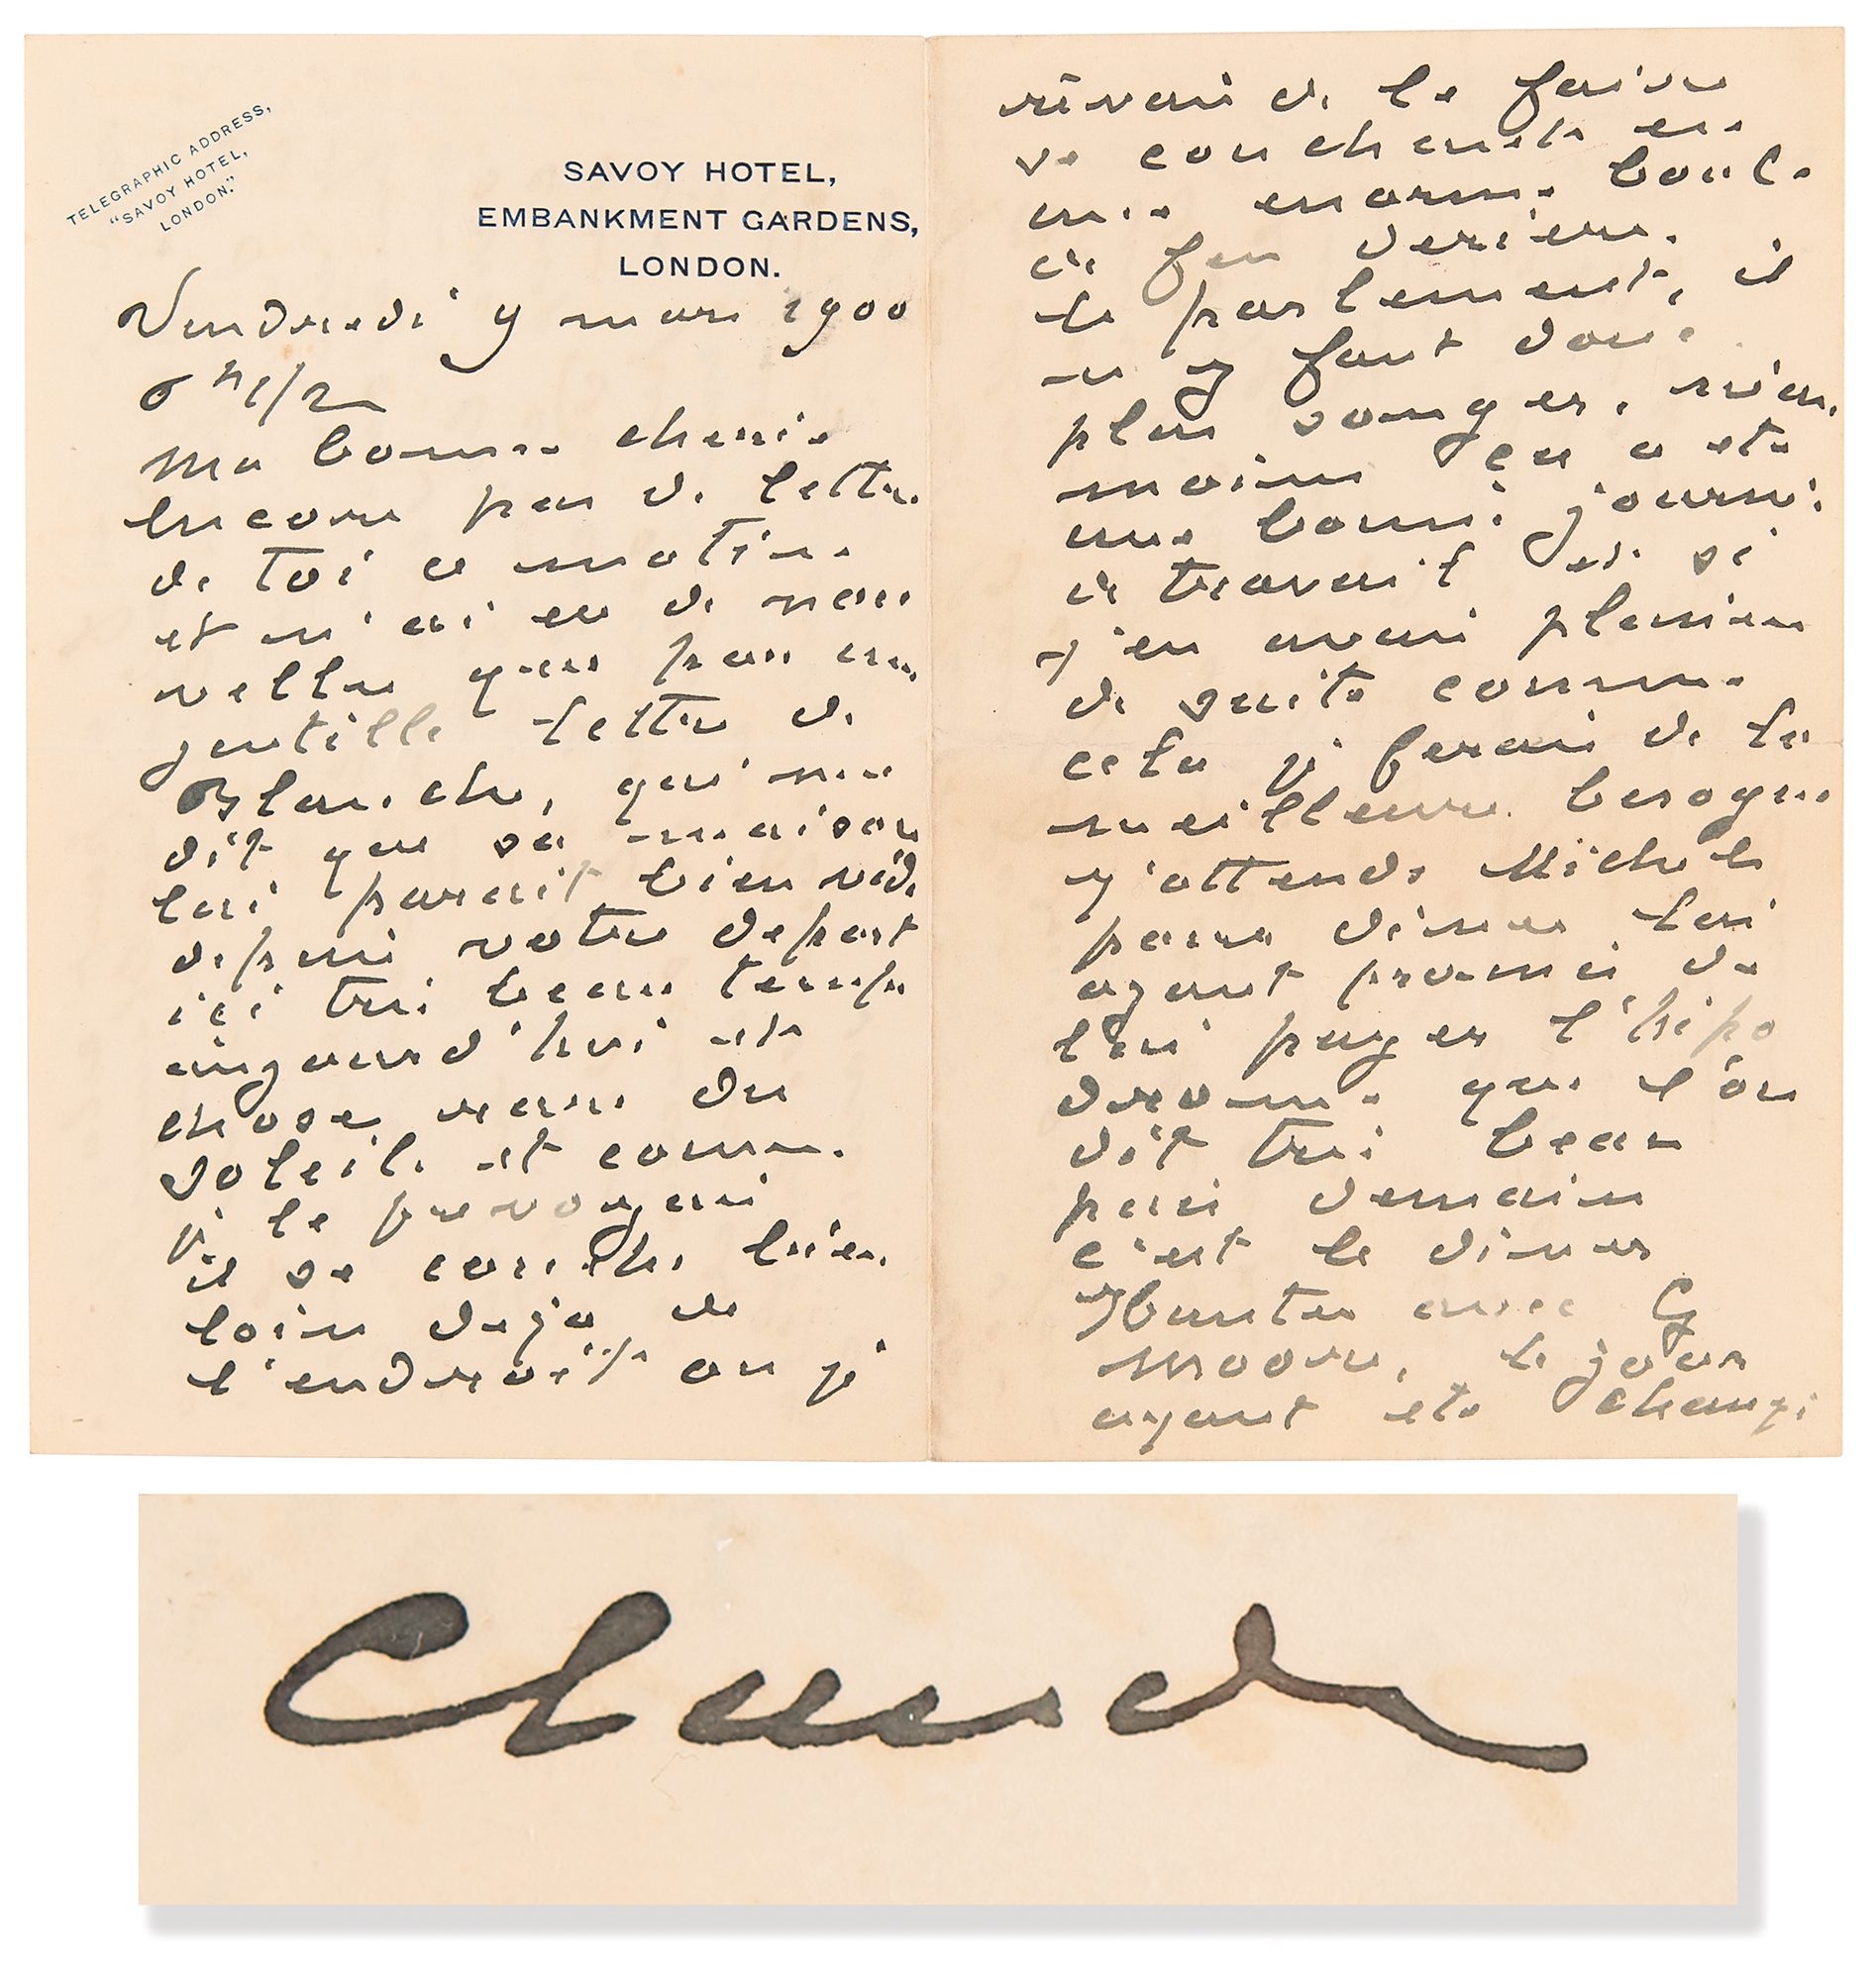 TELEGRAPHIC ADDRESS,
"SAVOY HOTEL,
LONDON."
SAVOY HOTEL,
EMBANKMENT GARDENS,
LONDON.
Vendredi 9 mars 1900
6h 1/2
Ma bonne cherie
Encore pas de lettre
de toi ce matin
et n'ai eu de nou
velles que par une
gentille lettre de
Blanche, qui me
dit que sa maison
lui parait bien vide
depuis votre depart
ici tres beau temps
aujourd'hui et
chose rare du
soleil et comme
je le prevoyais
il se couche bien
loin deja de
l'endroit ou je
rêvais de le faire
se couchant en
une enorme boule
de feu derriere
le parlement, il
ne faut donc
plus songer, rien
moins ça a été
une bonne journée
de travail et si
j'en avais plusieurs
de suite comme
cela je ferais de la
meilleure besogne
j'attends Michel
pour diner lui
ayant promis de
lui payer l'hippo
drome que l'on
dit tres beau
puis demain
c'est le diner
Hunter avec G
Moore, le jour
ayant été changé
Claude